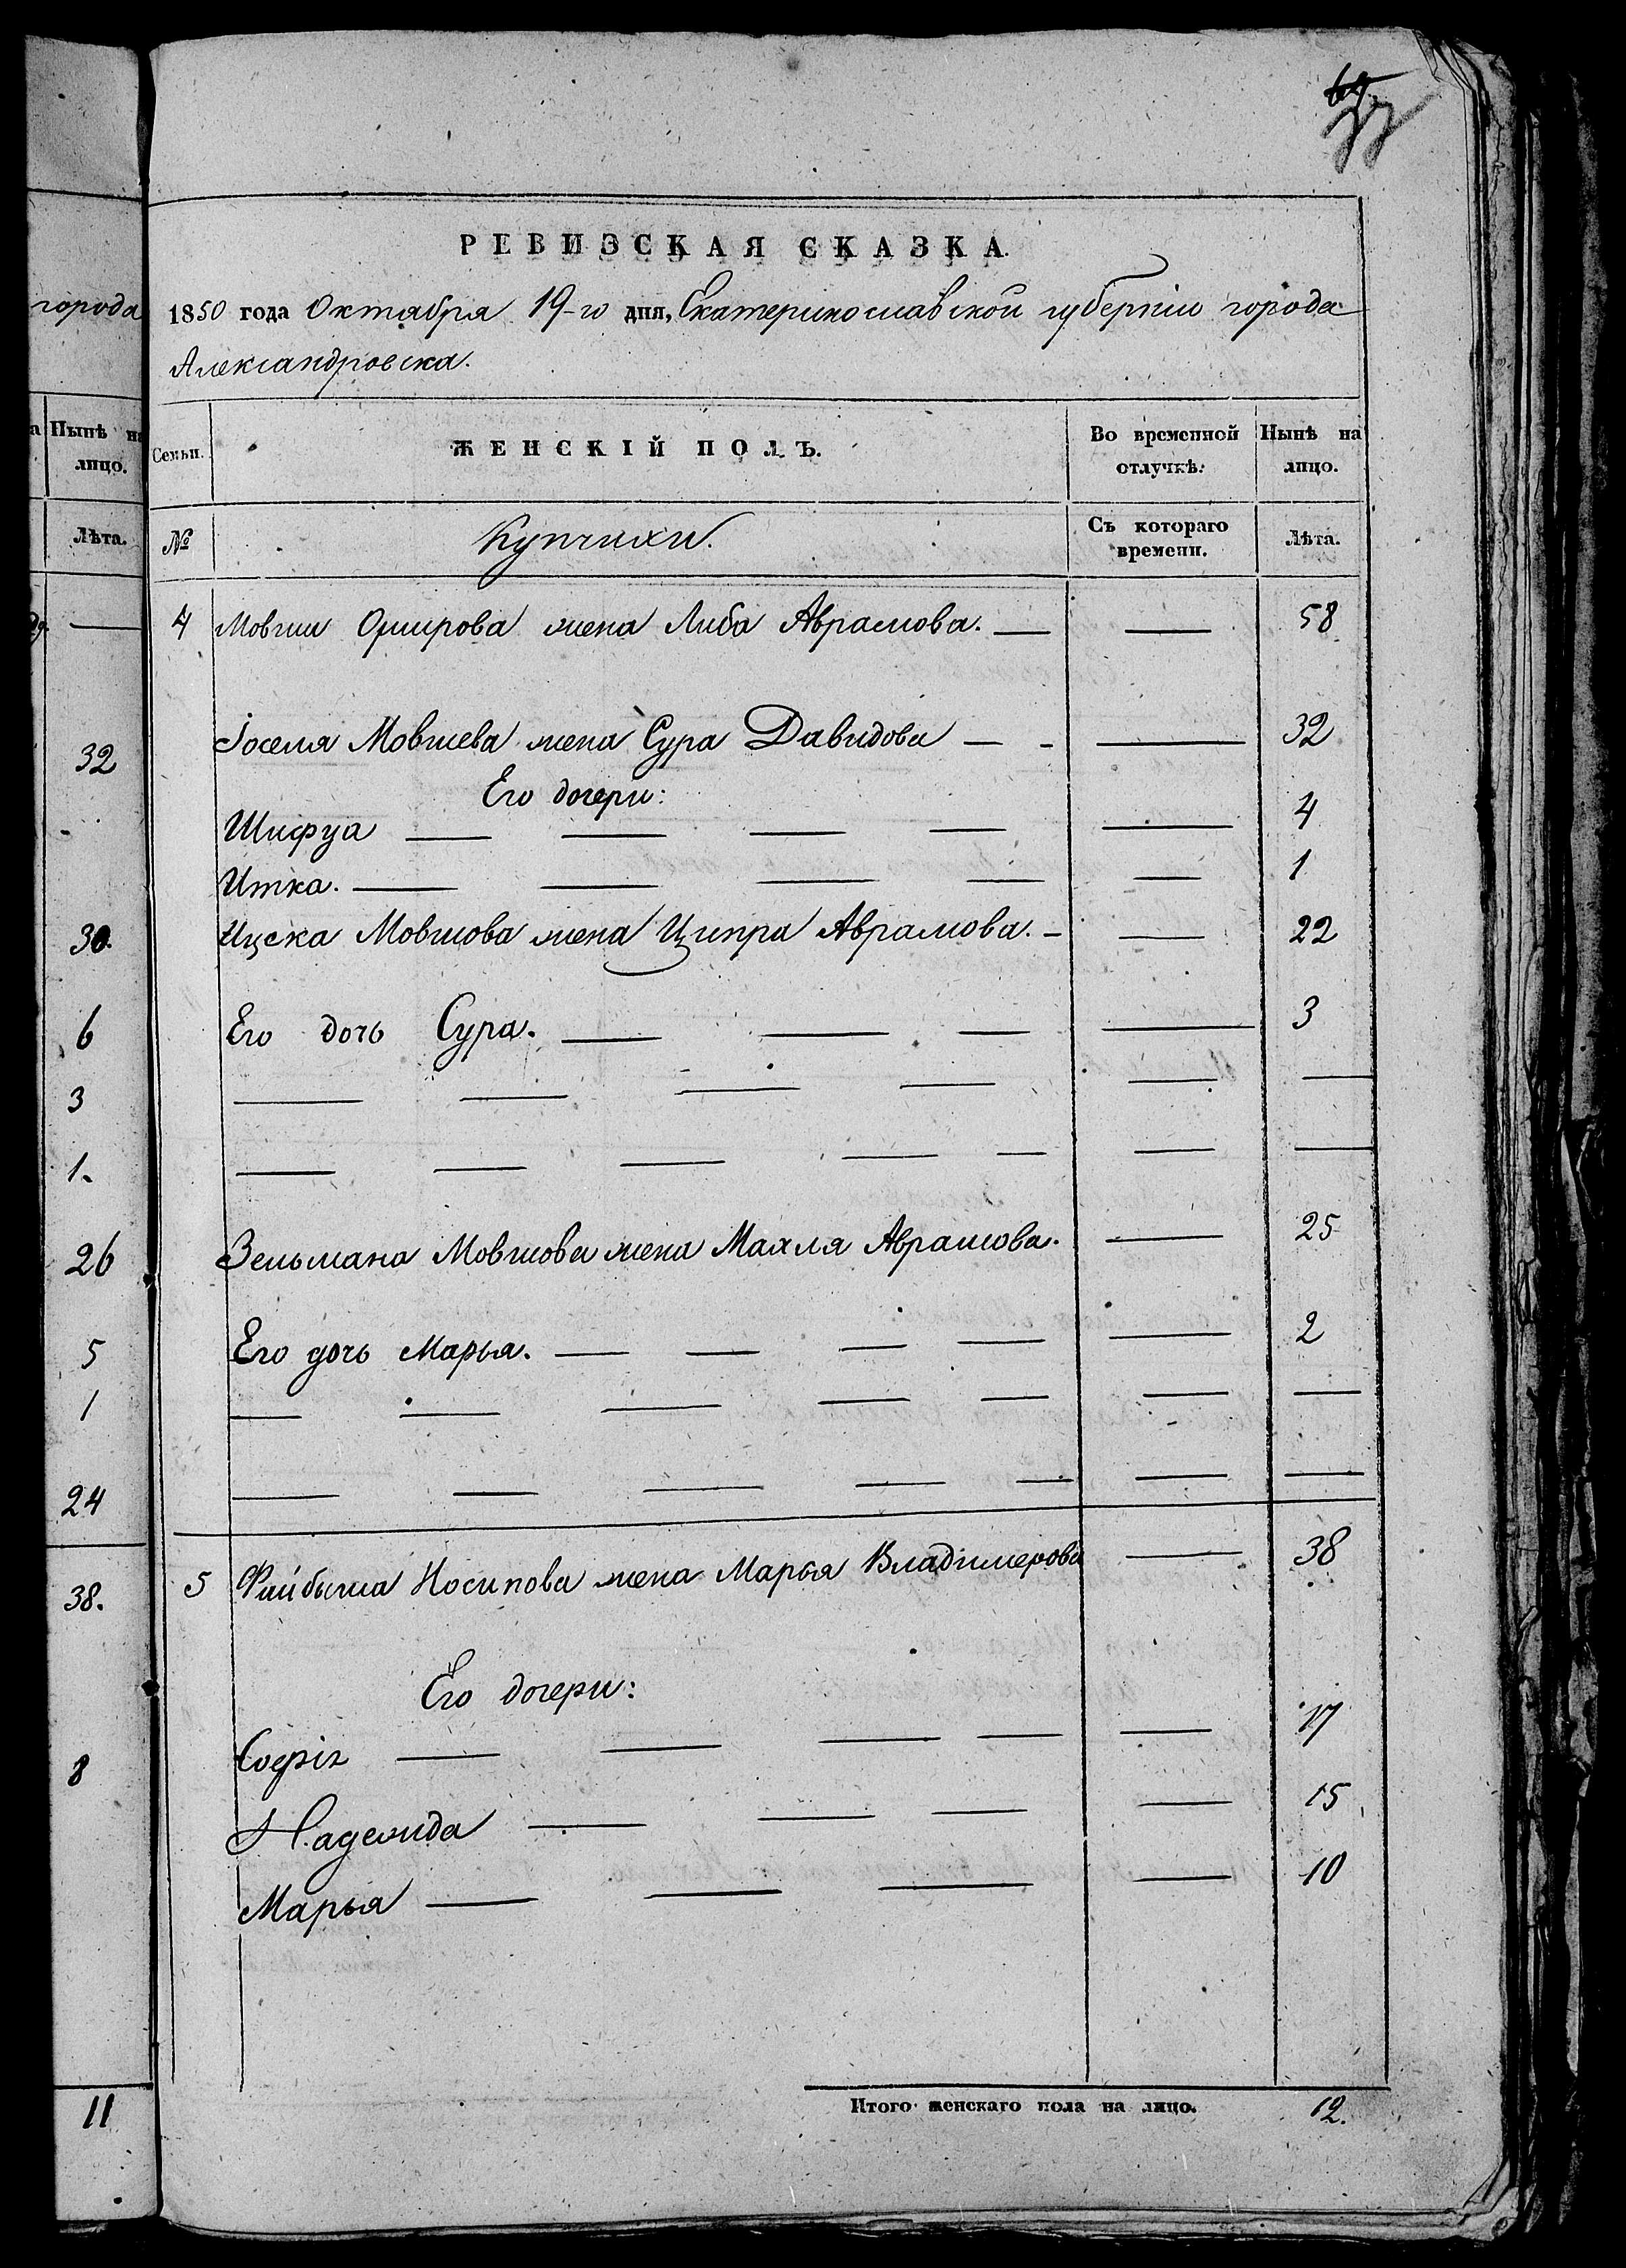 77
РЕВИЗСКАЯ СКАЗКА.
1850 года Октября 19-го дня, Екатеринославской губерніи города
Александровска.
Семьи. ЖЕНСКІЙ ПОЛЪ. Во временной отлучкѣ. Нынѣ на лицо.
№ Купчихи. Съ котораго времени. Лѣта.
4 Мовши Оширова жена Либа Аврамова. — — 58
Іоселя Мовшева жена Сура Давидова — — 32
Его дочери:
Шифуа — — 4
Итка. — — 1
Ицска Мовшова жена Ципра Аврамова. — — 22
Его дочь Сура. — — 3
Зельмана Мовшова жена Махля Аврамова. — 25
Его дочь Марья. — — 2
5 Файбыша Носипова жена Марья Владимерова — 38
Его дочери:
Софія — — 17
Надежда — — 15
Марья — — 10
Итого женскаго пола на лицо. 12.
города
Нынѣ на
лицо.
Лѣта.
32
30.
6
3
1.
26
5
1
24
38.
8
11